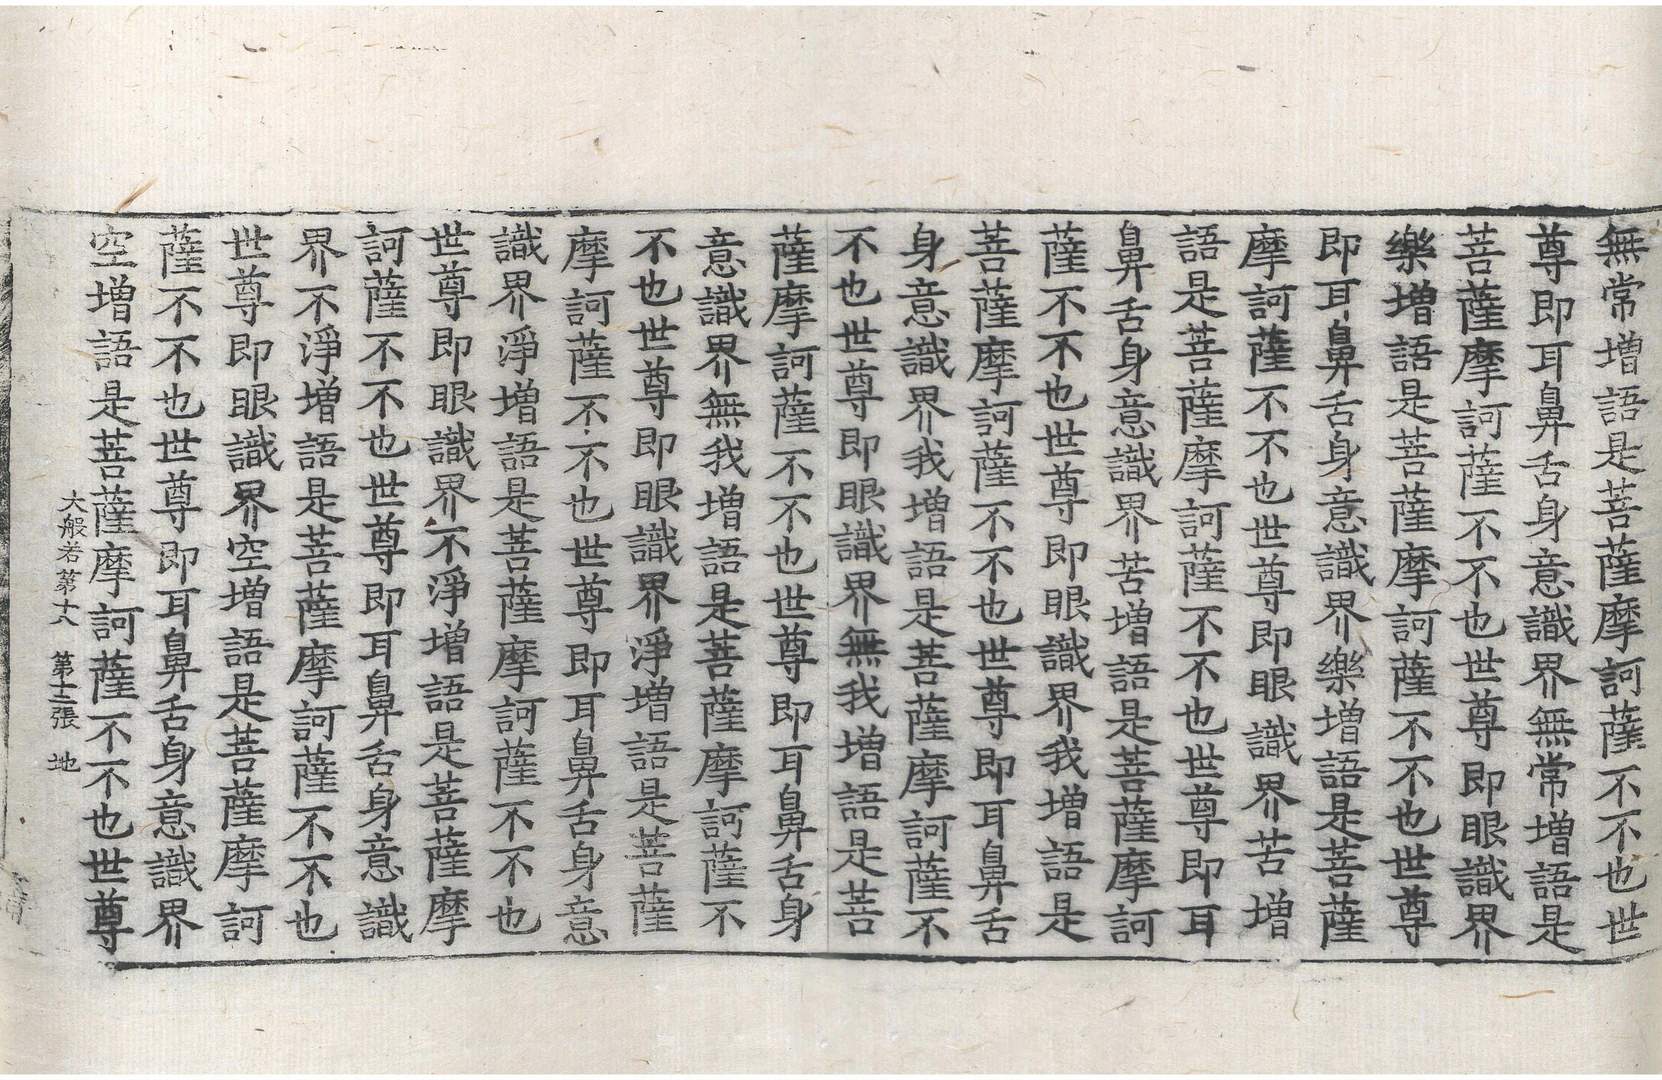 無常增語是菩薩摩訶薩不不也世
尊即耳鼻舌身意識界無常增語是
菩薩摩訶薩不不也世尊即眼識界
樂增語是菩薩摩訶薩不不也世尊
即耳鼻舌身意識界樂增語是菩薩
摩訶薩不不也世尊即眼識界苦增
語是菩薩摩訶薩不不也世尊即耳
鼻舌身意識界苦增語是菩薩摩訶
薩不不也世尊即眼識界我增語是
菩薩摩訶薩不不也世尊即耳鼻舌
身意識界我增語是菩薩摩訶薩不
不也世尊即眼識界無我增語是菩
薩摩訶薩不不也世尊即耳鼻舌身
意識界無我增語是菩薩摩訶薩不
不也世尊即眼識界淨增語是菩薩
摩訶薩不不也世尊即耳鼻舌身意
識界淨增語是菩薩摩訶薩不不也
世尊即眼識界不淨增語是菩薩摩
訶薩不不也世尊即耳鼻舌身意識
界不淨增語是菩薩摩訶薩不不也
世尊即眼識界空增語是菩薩摩訶
薩不不也世尊即耳鼻舌身意識界
空增語是菩薩摩訶薩不不也世尊
大般若第十八 第十三張 地